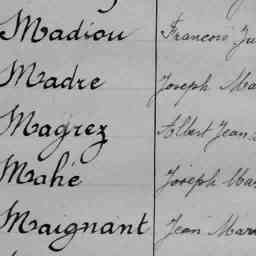 Madiou Francois Ju
Madre Joseph Ma
Magrez Albert Jean
Mahé Joseph Mar
Maignant Jean Mari